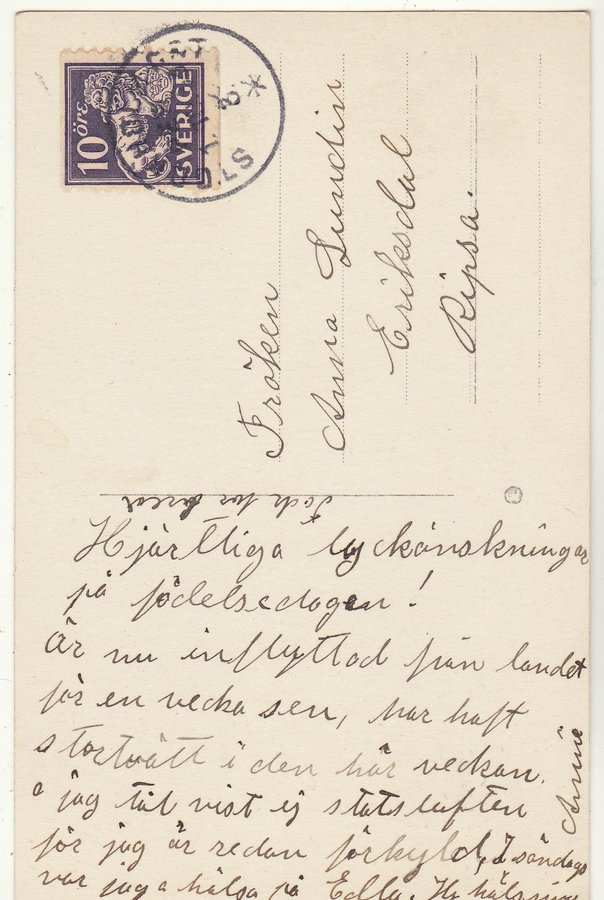 10 ÖRE
SVERIGE
Fröken
Anna Lundin
Eriksdal
Ripsa.
Tack för brevet
Hjärtliga lyckönskningar
på födelsedagen!
Är nu inflyttad från landet
för en vecka sen, har haft
stortvätt i den här veckan.
o jag tål vist ej statsluften
för jag är redan förkyld, I söndags
var jag o hälsa på Edla. Hj hälsning